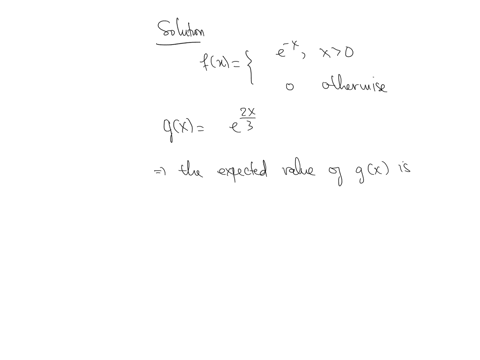 Solution
f(x) = { e^{-x}, x>0
0 otherwise
g(x) = e^{\frac{2x}{3}}
⇒ the expected value of g(x) is